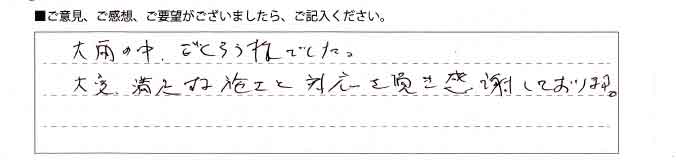 ■ご意見、ご感想、ご要望がございましたら、ご記入ください。
大雨の中、ごくろう様でした。
大変、満足な施工と対応を頂き感謝しております。